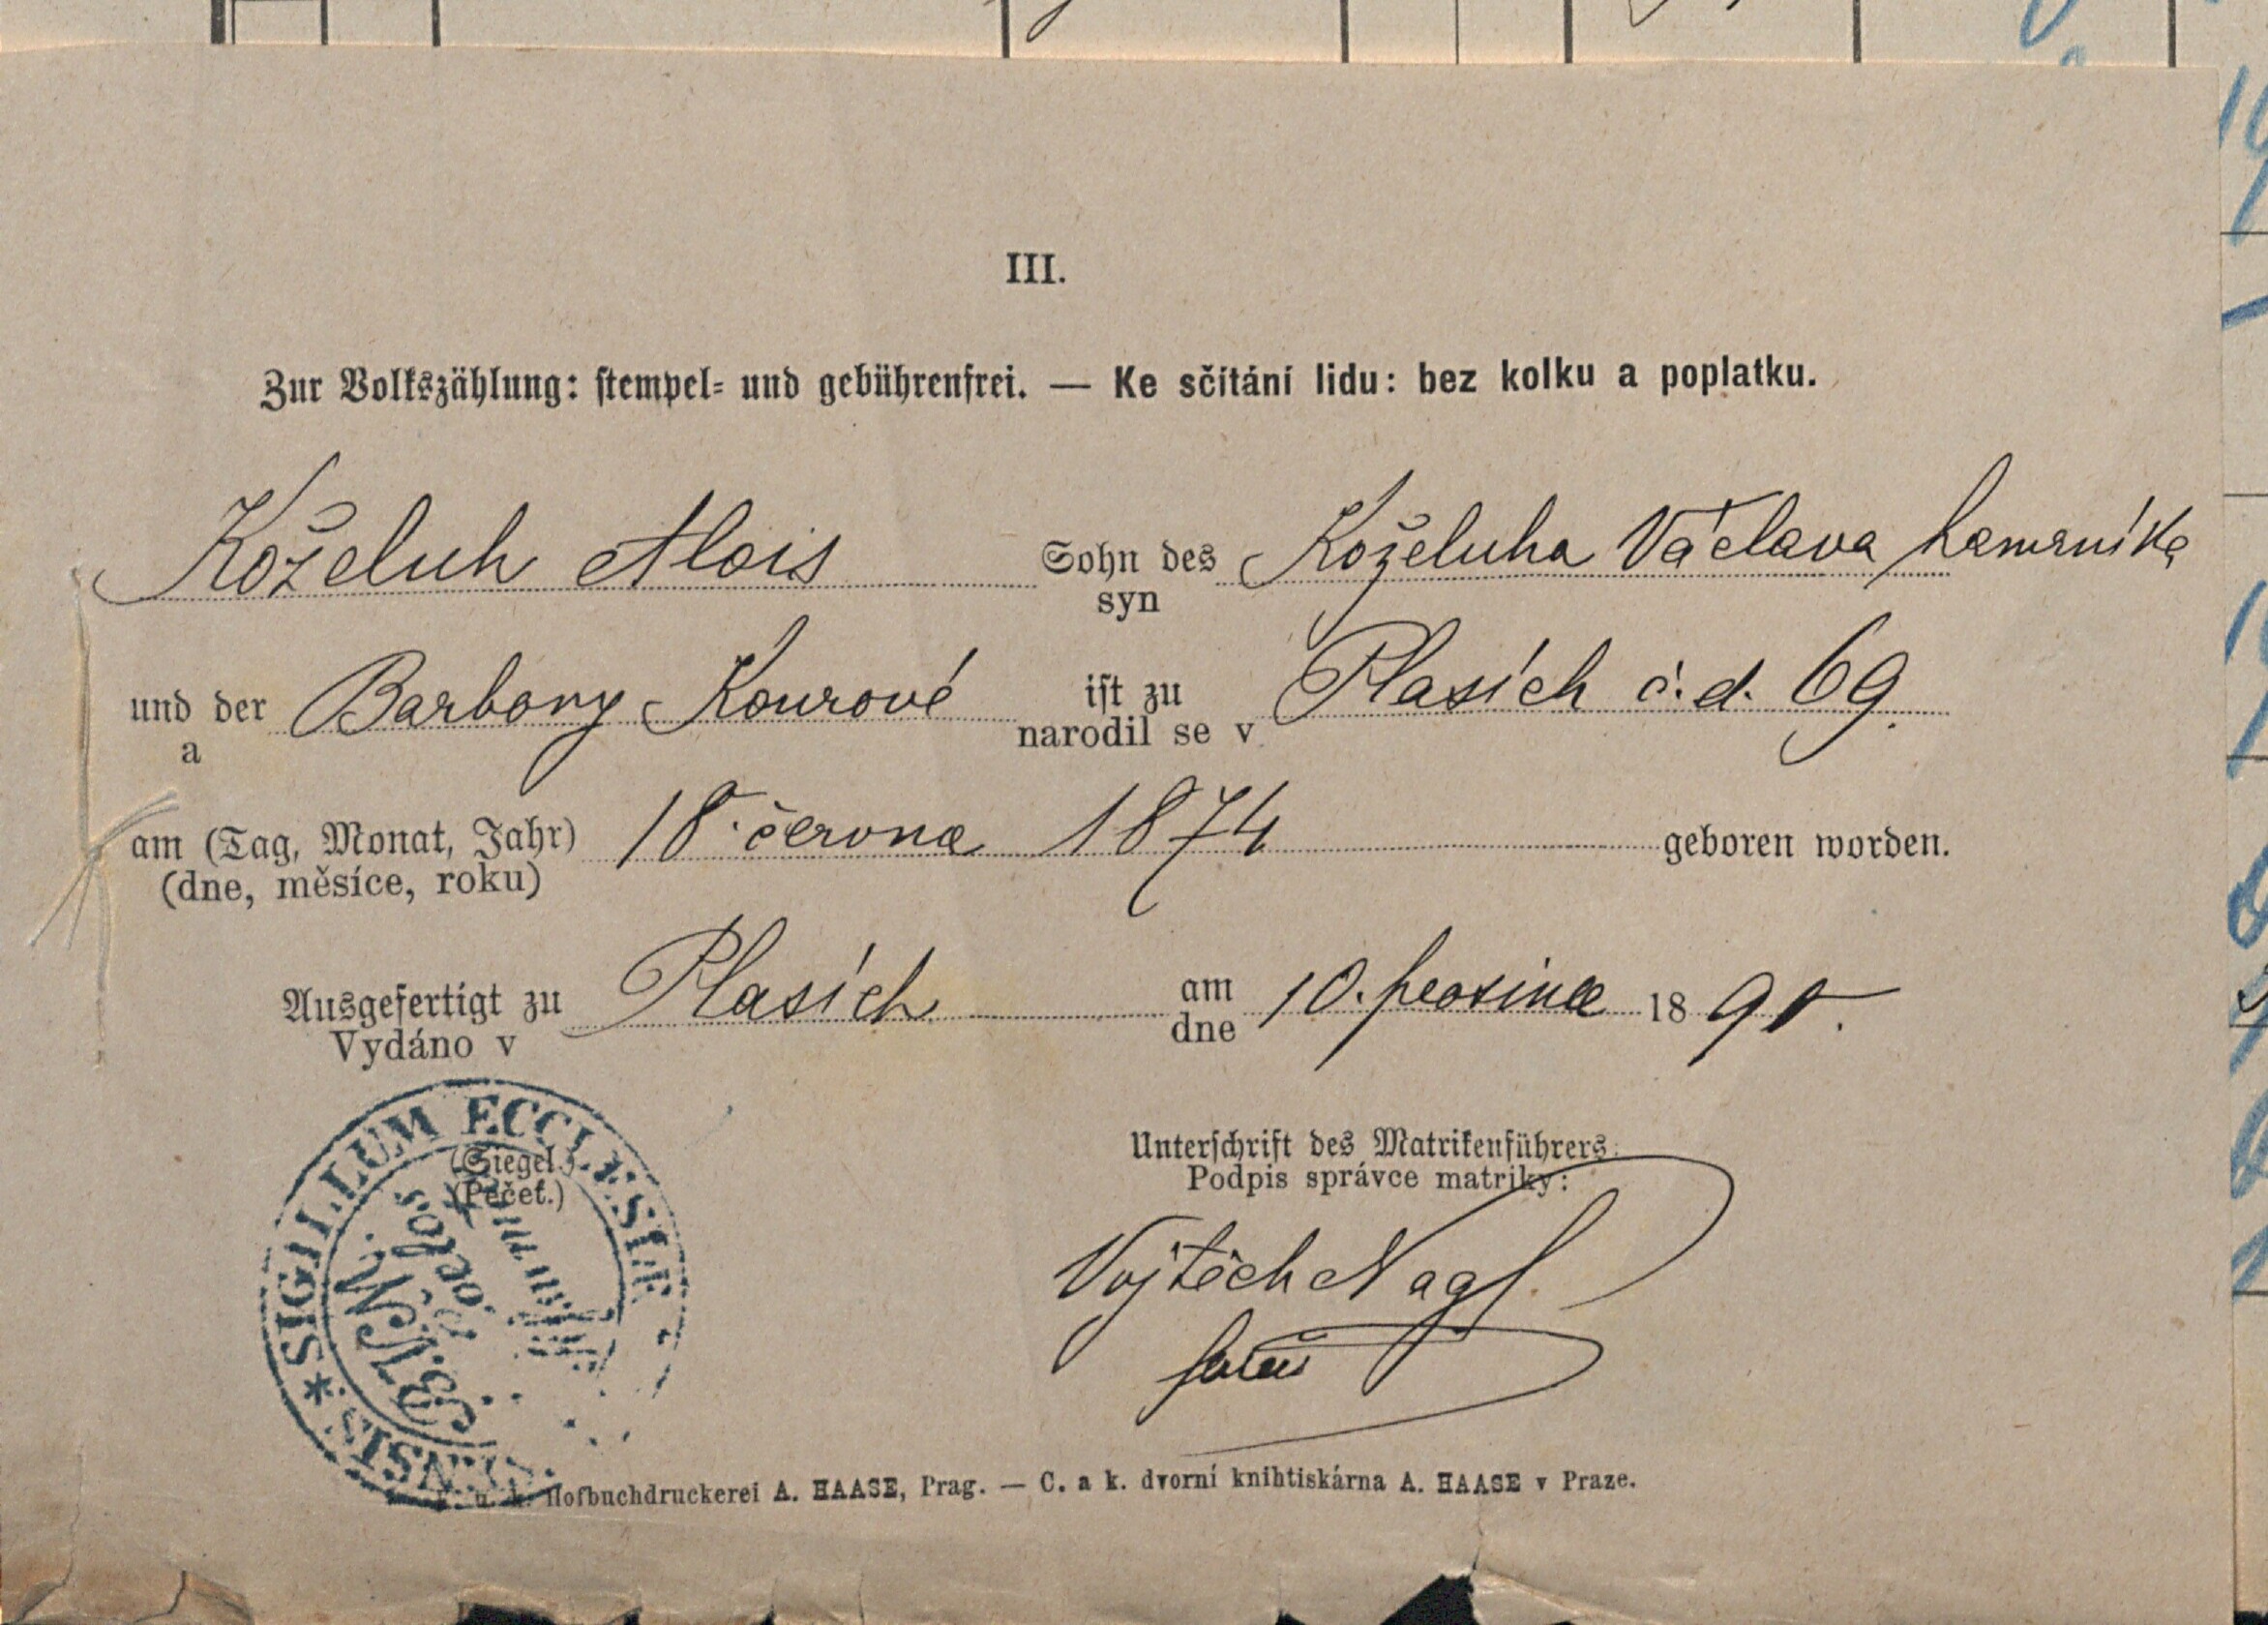 III.
Zur Volkszählung: stempel- und gebührenfrei. — Ke sčítání lidu: bez kolku a poplatku.
Koželuh Alois Sohn des Koželuha Václava
syn
und der Barbory Kourové ist zu Plasích č. d. 69.
a narodil se v
am (Tag, Monat, Jahr) 18. června 1874 geboren worden.
(dne, měsíce, roku)
Ausgefertigt zu Plasích am 10. prosince 1890.
Vydáno v dne
SIGILLUM ECCLESIE
(Siegel.)
(Pečeť.)
Unterschrift des Matrikenführers:
Podpis správce matriky:
Vojtěch Nagl
farář
u. k. Hofbuchdruckerei A. HAASE, Prag. — C. a k. dvorní knihtiskárna A. HAASE v Praze.